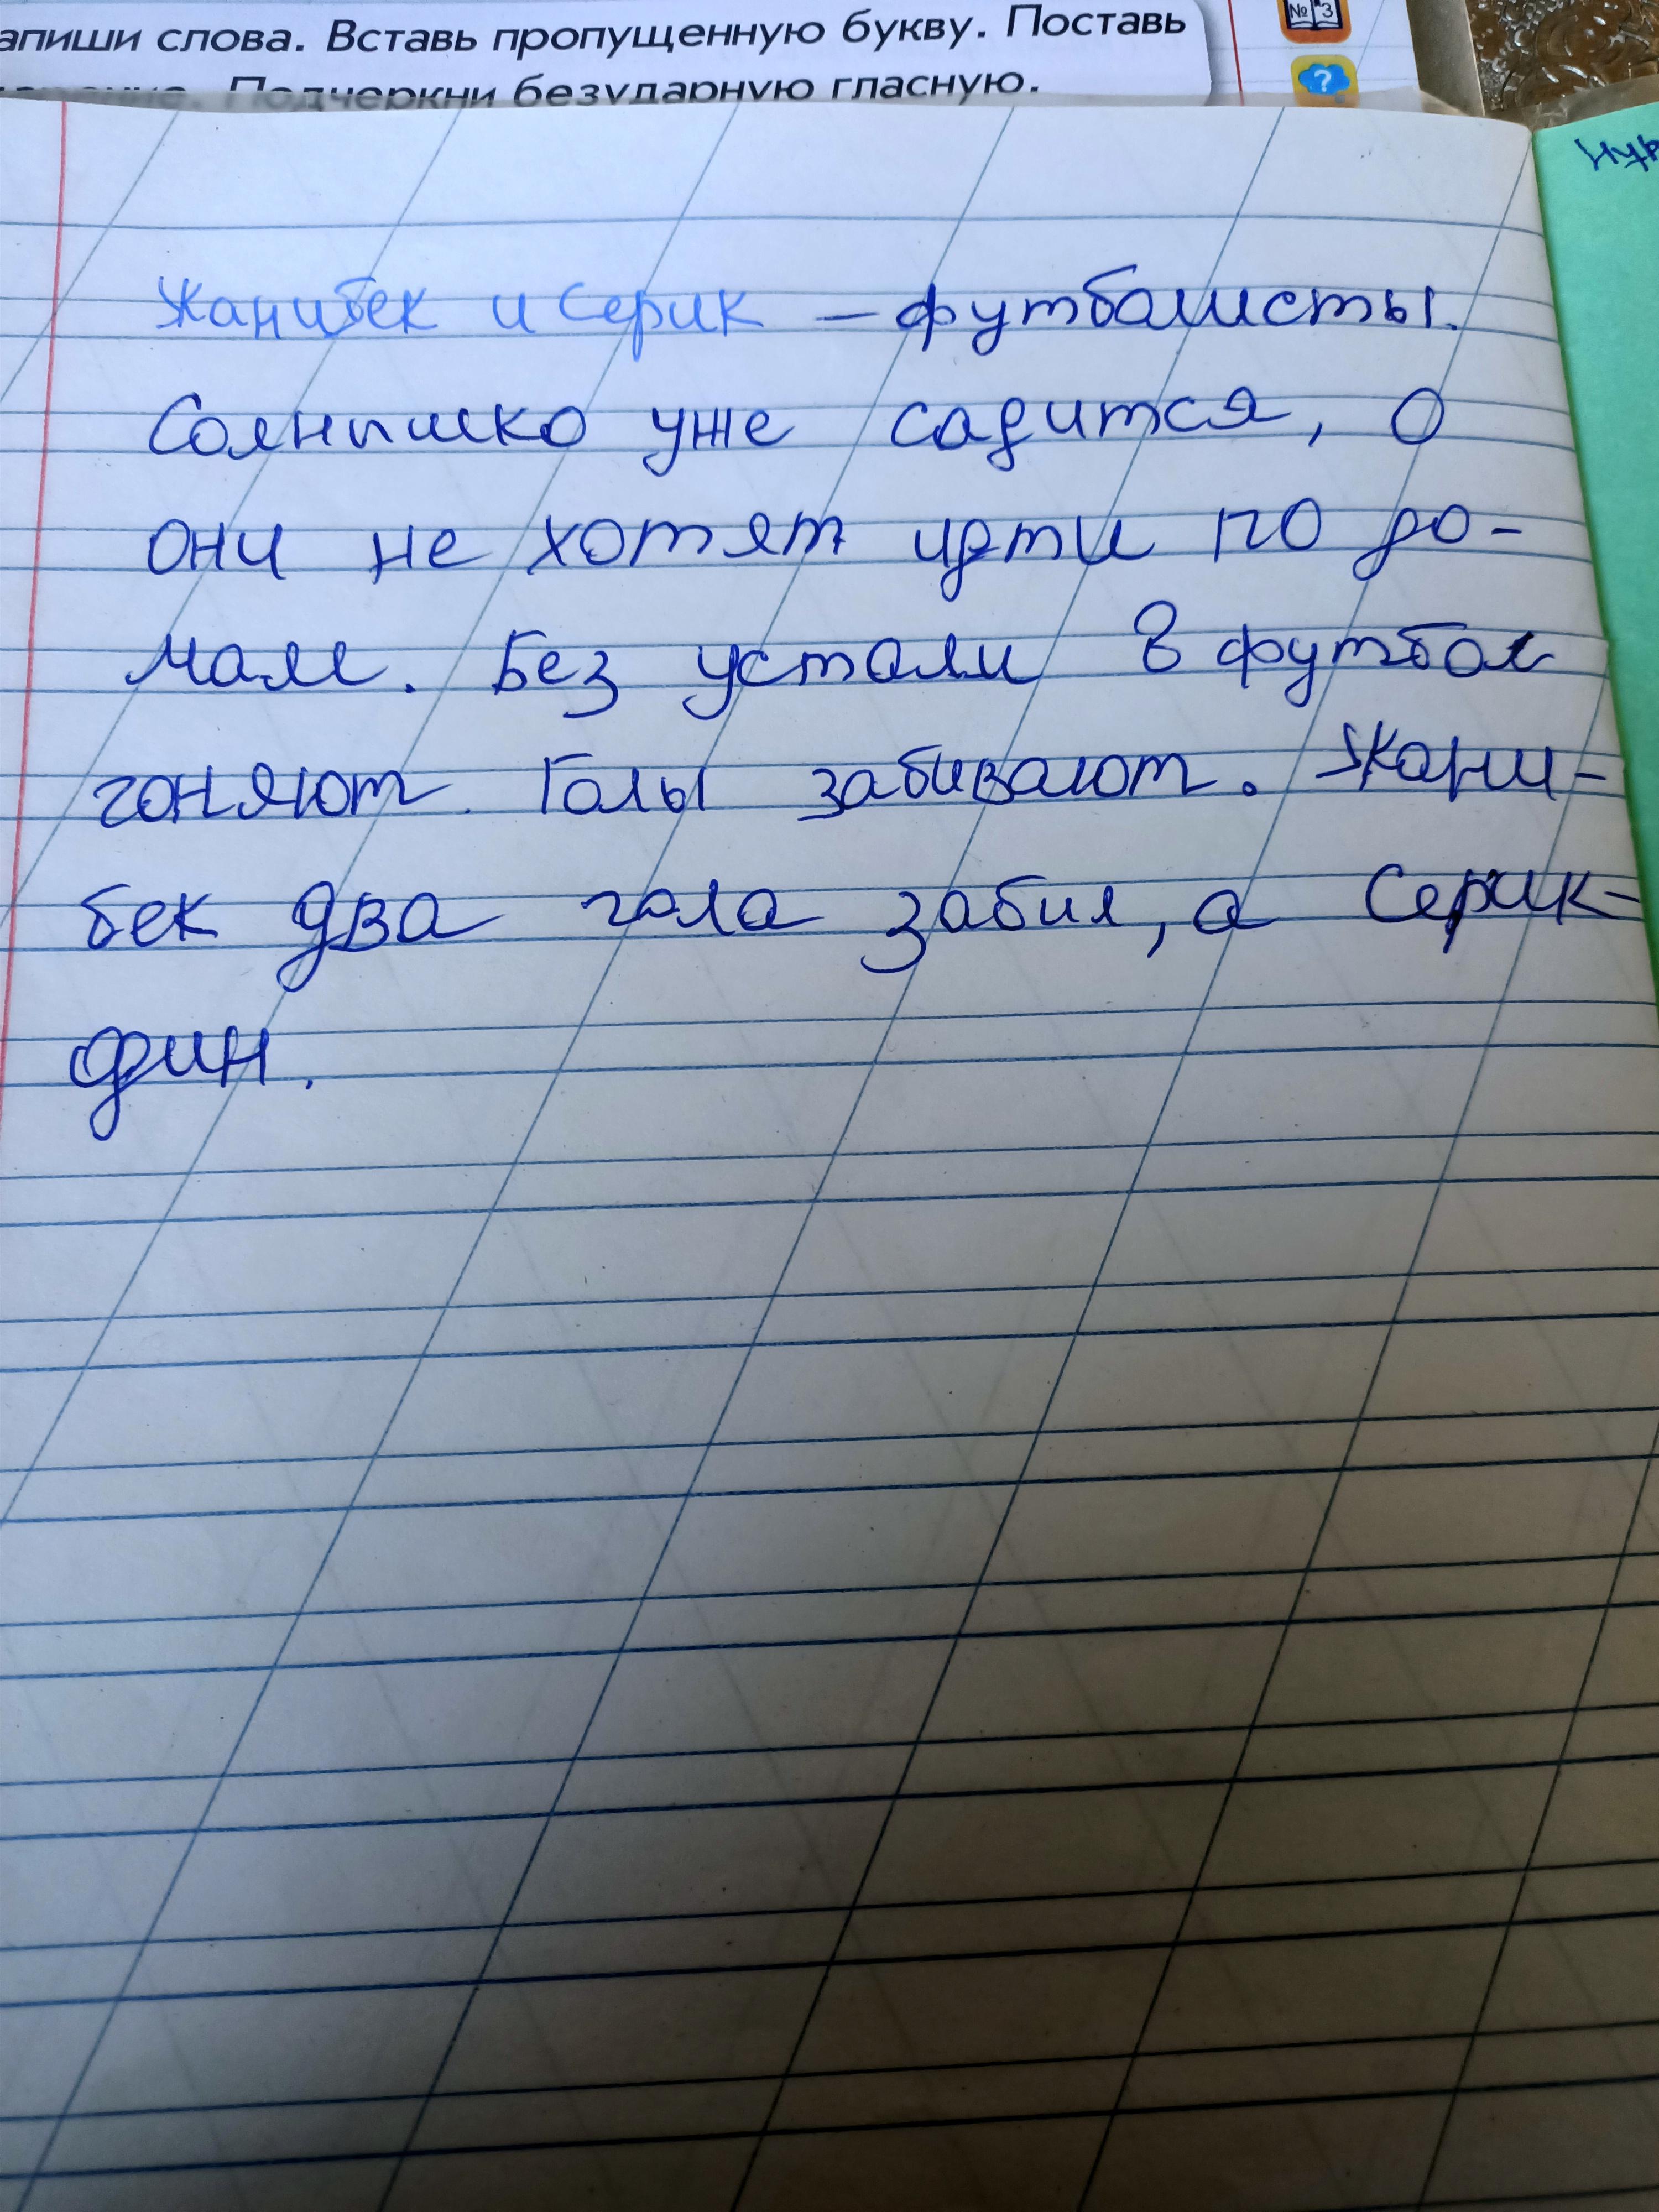 апиши слова. Вставь пропущенную букву. Поставь
Подчеркни безударную гласную.
№ 3
?
Жанибек и Серик – футболисты.
Солнышко уже садится, а
они не хотят идти по до-
мам. Без устали в футбол
гоняют. Голы забивают. Жани-
бек два гола забил, а Серик-
один.